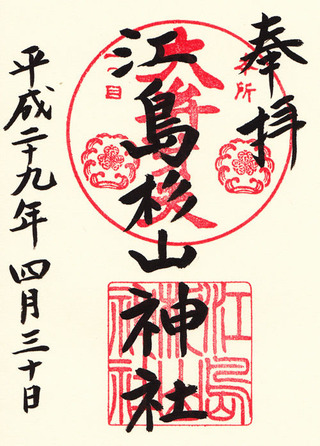 奉拝
江島杉山神社
平成二十九年四月三十日
江島杉山神社